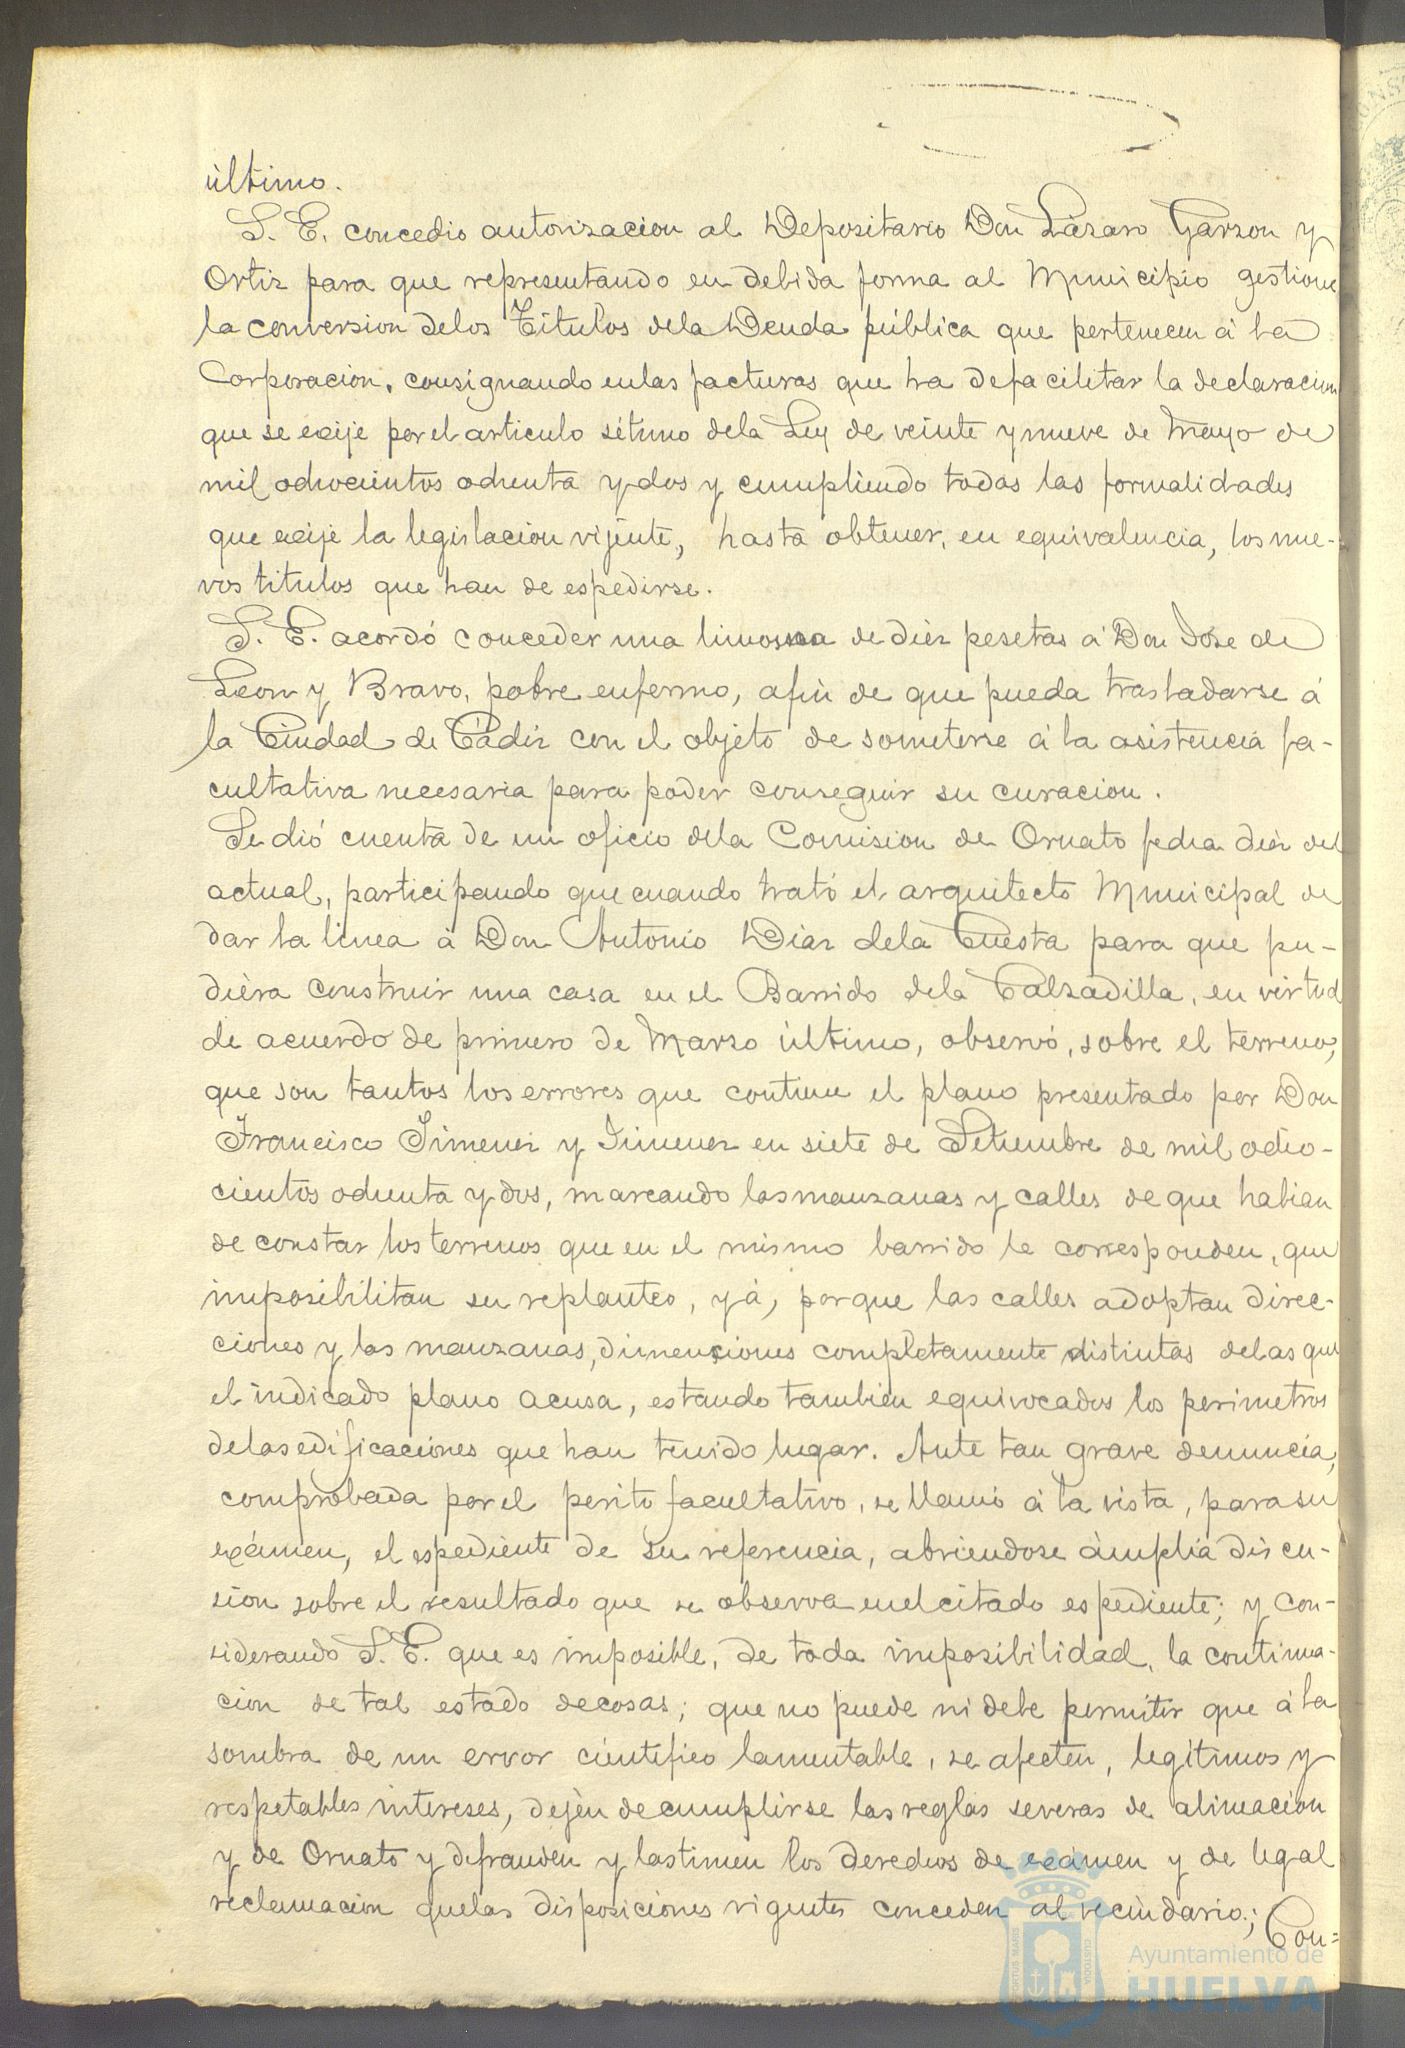 último.
S. E. concedio autorizacion al Depositario Don Lázaro Garzon y
Ortiz para que representando en debida forma al Municipio gestione
la conversion delos Títulos dela Deuda pública que pertenecen á la
Corporacion, consignando enlas facturas que ha defacilitar la declaracion
que se exije por el articulo sétimo dela Ley de veinte y nueve de Mayo de
mil ochocientos ochenta y dos y cumpliendo todas las formalidades
que exije la legislacion vijente, hasta obtener, en equivalencia, los nue-
vos titulos que han de espedirse.
S. E. acordó conceder una limosna de diez pesetas á Don José de
Leon y Bravo, pobre enfermo, afin de que pueda trasladarse á
la Ciudad de Cádiz con el objeto de someterse á la asistencia fa-
cultativa necesaria para poder conseguir su curacion.
Se dió cuenta de un oficio dela Comision de Ornato fecha diez del
actual, participando que cuando trató el arquitecto Municipal de
dar la linea á Don Antonio Diaz dela Cuesta para que pu-
diera construir una casa en el Barrido dela Calzadilla, en virtud
de acuerdo de primero de Marzo último, observó, sobre el terreno,
que son tantos los errores que contiene el plano presentado por Don
Francisco Jimenez y Jimenez en siete de Setiembre de mil ocho-
cientos ochenta y dos, marcando las manzanas y calles de que habian
de constar los terrenos que en el mismo barrido le corresponden, que
imposibilitan su replanteo, yá, porque las calles adoptan direc-
ciones y las manzanas, dimenciones completamente distintas delas que
el indicado plano acusa, estando tambien equivocados los perimetros
delas edificaciones que han tenido lugar. Ante tan grave denuncia,
comprobada por el perito facultativo, se llamó á la vista, para su
exámen, el espediente de su referencia, abriendose ámplia discu-
sion sobre el resultado que se observa enel citado espediente; y con-
siderando S. E. que es imposible, de toda imposibilidad, la continua-
cion de tal estado decosas; que no puede ni debe permitir que á la
sombra de un error científico lamentable, se afecten, legítimos y
respetables intereses, dejen de cumplirse las reglas severas de alineacion
y de Ornato y defrauden y lastimen los derechos de exámen y de legal
reclamacion quelas disposiciones vigentes conceden al vecindario.;
Con=
Ayuntamiento de
HUELVA